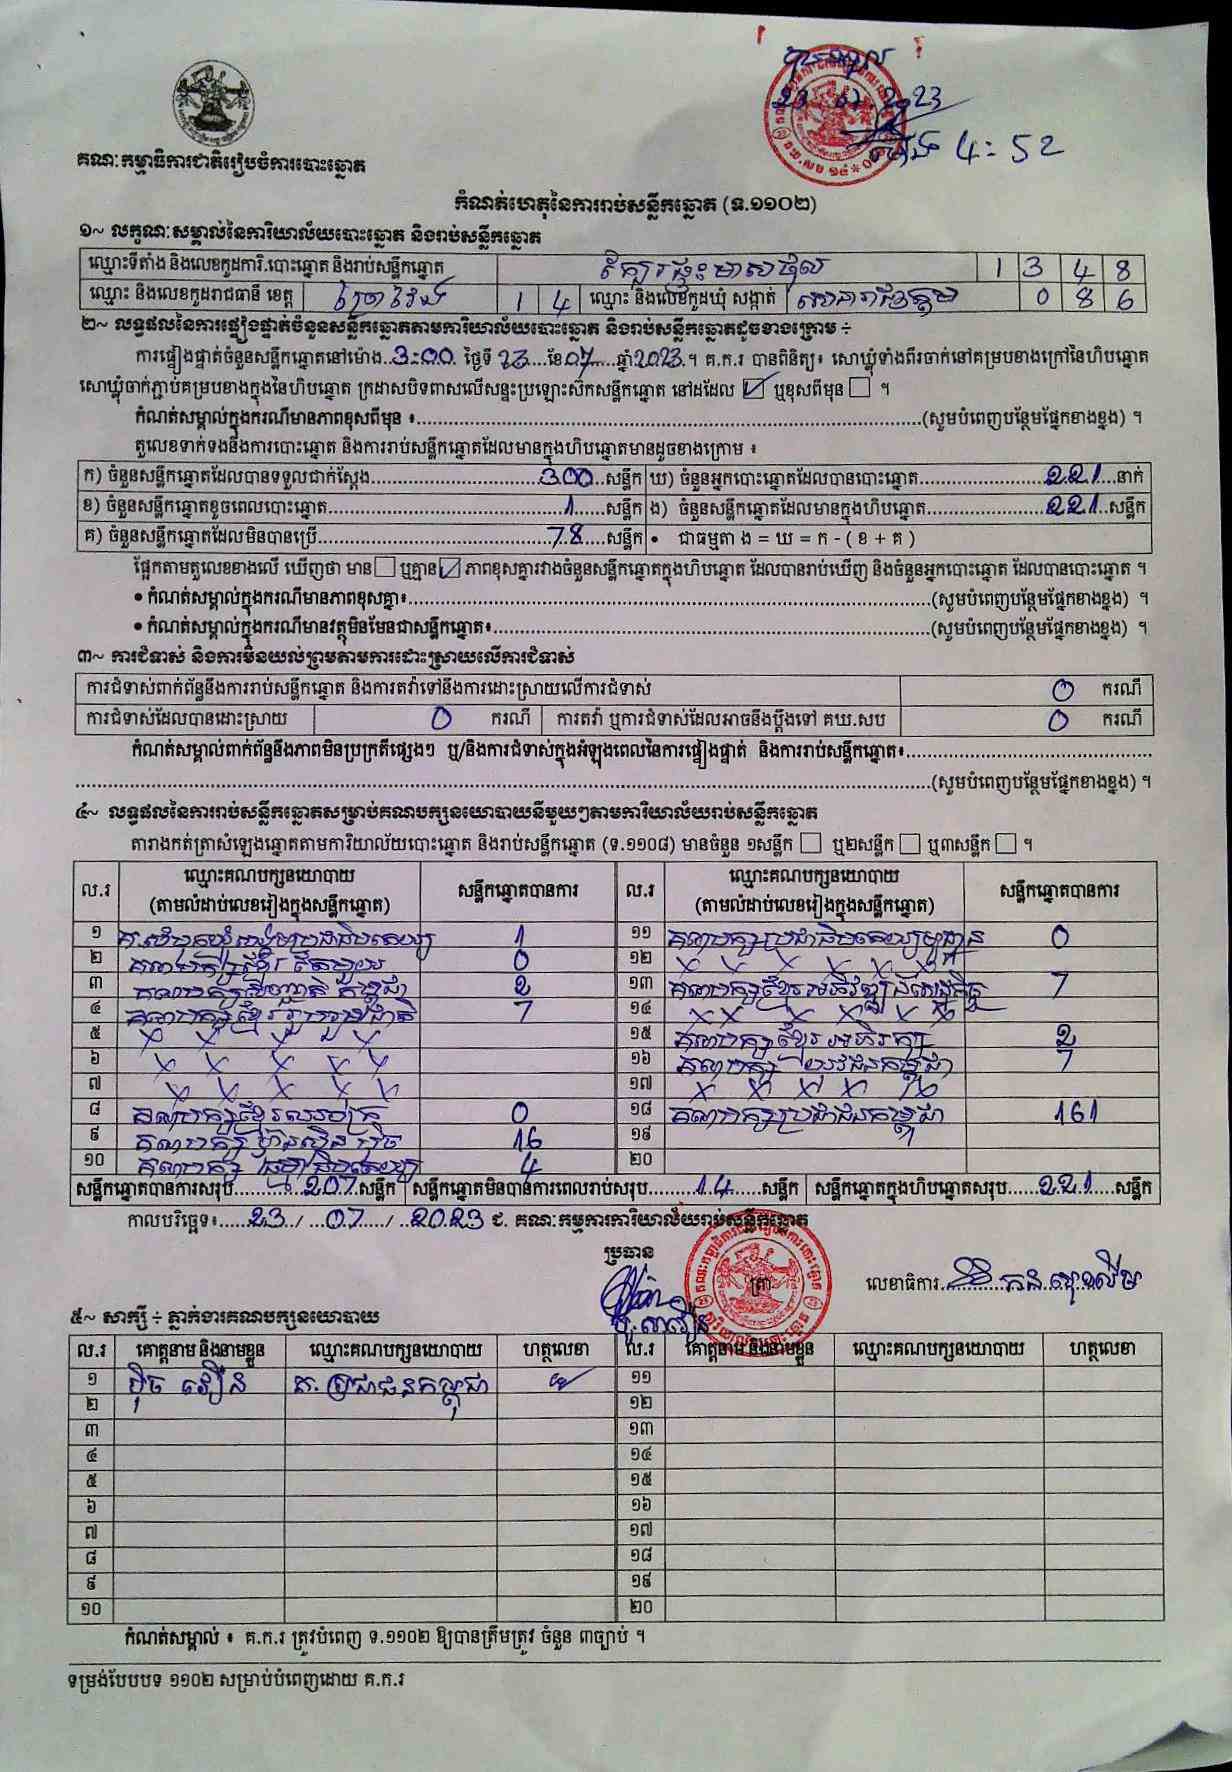 បានទទួល
23.07.2023
ម៉ោង 4:52
គណៈកម្មាធិការជាតិរៀបចំការបោះឆ្នោត
កំណត់ហេតុនៃការរាប់សន្លឹកឆ្នោត (ទ.១១០២)
១~ លក្ខណៈសម្គាល់នៃការិយាល័យបោះឆ្នោត និងរាប់សន្លឹកឆ្នោត
ឈ្មោះទីតាំង និងលេខកូដការិ.បោះឆ្នោត និងរាប់សន្លឹកឆ្នោត 1 3 4 8
ឈ្មោះ និងលេខកូដរាជធានី ខេត្ត ព្រៃវែង 1 4 ឈ្មោះ និងលេខកូដឃុំ សង្កាត់ 0 8 6
២~ លទ្ធផលនៃការផ្ទៀងផ្ទាត់ចំនួនសន្លឹកឆ្នោតតាមការិយាល័យបោះឆ្នោត និងរាប់សន្លឹកឆ្នោតដូចខាងក្រោម ÷
ការផ្ទៀងផ្ទាត់ចំនួនសន្លឹកឆ្នោតនៅម៉ោង..3:00. ថ្ងៃទី 23 ....ខែ07.....ឆ្នាំ2023.។ គ.ក.រ បានពិនិត្យ៖ សោឃ្លុំទាំងពីរចាក់នៅគម្របខាងក្រៅនៃហិបឆ្នោត
សោឃ្លុំចាក់ភ្ជាប់គម្របខាងក្នុងនៃហិបឆ្នោត ក្រដាសបិទពាសលើសន្ទះប្រឡោះស៊កសន្លឹកឆ្នោត នៅដដែល ☑ ឬខុសពីមុន ☐ ។
កំណត់សម្គាល់ក្នុងករណីមានភាពខុសពីមុន ៖..........(សូមបំពេញបន្ថែមផ្នែកខាងខ្នង) ។
តួលេខទាក់ទងនឹងការបោះឆ្នោត និងការរាប់សន្លឹកឆ្នោតដែលមានក្នុងហិបឆ្នោតមានដូចខាងក្រោម ៖
ក) ចំនួនសន្លឹកឆ្នោតដែលបានទទួលជាក់ស្តែង..........300..សន្លឹក ឃ) ចំនួនអ្នកបោះឆ្នោតដែលបានបោះឆ្នោត..........221...នាក់
ខ) ចំនួនសន្លឹកឆ្នោតខូចពេលបោះឆ្នោត..........1.....សន្លឹក ង) ចំនួនសន្លឹកឆ្នោតដែលមានក្នុងហិបឆ្នោត..........221..សន្លឹក
គ) ចំនួនសន្លឹកឆ្នោតដែលមិនបានប្រើ..........78.....សន្លឹក • ជាធម្មតា ង = ឃ = ក - ( ខ + គ )
ផ្អែកតាមតួលេខខាងលើ ឃើញថា មាន ☐ ឬគ្មាន ☑ ភាពខុសគ្នារវាងចំនួនសន្លឹកឆ្នោតក្នុងហិបឆ្នោត ដែលបានរាប់ឃើញ និងចំនួនអ្នកបោះឆ្នោត ដែលបានបោះឆ្នោត ។
• កំណត់សម្គាល់ក្នុងករណីមានភាពខុសគ្នា៖..........(សូមបំពេញបន្ថែមផ្នែកខាងខ្នង) ។
• កំណត់សម្គាល់ក្នុងករណីមានវត្ថុមិនមែនជាសន្លឹកឆ្នោត៖..........(សូមបំពេញបន្ថែមផ្នែកខាងខ្នង) ។
៣~ ការជំទាស់ និងការមិនយល់ព្រមតាមការដោះស្រាយលើការជំទាស់
ការជំទាស់ពាក់ព័ន្ធនឹងការរាប់សន្លឹកឆ្នោត និងការតវ៉ាទៅនឹងការដោះស្រាយលើការជំទាស់ 0 ករណី
ការជំទាស់ដែលបានដោះស្រាយ 0 ករណី ការតវ៉ា ឬការជំទាស់ដែលអាចនឹងប្តឹងទៅ គឃ.សប 0 ករណី
កំណត់សម្គាល់ពាក់ព័ន្ធនឹងភាពមិនប្រក្រតីផ្សេងៗ ឬ/និងការជំទាស់ក្នុងអំឡុងពេលនៃការផ្ទៀងផ្ទាត់ និងការរាប់សន្លឹកឆ្នោត៖..........
..........(សូមបំពេញបន្ថែមផ្នែកខាងខ្នង) ។
៤~ លទ្ធផលនៃការរាប់សន្លឹកឆ្នោតសម្រាប់គណបក្សនយោបាយនីមួយៗតាមការិយាល័យរាប់សន្លឹកឆ្នោត
តារាងកត់ត្រាសំឡេងឆ្នោតតាមការិយាល័យបោះឆ្នោត និងរាប់សន្លឹកឆ្នោត (ទ.១១០៨) មានចំនួន ១សន្លឹក ☐ ឬ២សន្លឹក ☐ ឬ៣សន្លឹក ☐ ។
ល.រ ឈ្មោះគណបក្សនយោបាយ សន្លឹកឆ្នោតបានការ ល.រ ឈ្មោះគណបក្សនយោបាយ សន្លឹកឆ្នោតបានការ
(តាមលំដាប់លេខរៀងក្នុងសន្លឹកឆ្នោត) (តាមលំដាប់លេខរៀងក្នុងសន្លឹកឆ្នោត)
១ គ.សំបុកឃ្មុំសង្គមប្រជាធិបតេយ្យ 1 ១១ គណបក្សប្រជាធិបតេយ្យមូលដ្ឋាន 0
២ គណបក្សខ្មែរតែមួយ 0 ១២ X X X X X X
៣ គណបក្ស កម្ពុជា 2 ១៣ គណបក្សខ្មែរអភិវឌ្ឍន៍សេដ្ឋកិច្ច 7
៤ គណបក្សខ្មែររួបរួមជាតិ 7 ១៤ X X X X X X
៥ X X X X X ១៥ គណបក្សខ្មែរអភិរក្ស 2
៦ X X X X X ១៦ គណបក្ស យុវជនកម្ពុជា 7
៧ X X X X X ១៧ X X X X X
៨ គណបក្សខ្មែរឈប់ក្រ 0 ១៨ គណបក្សប្រជាជនកម្ពុជា 161
៩ គណបក្ស ហ៊្វុនស៊ិនប៉ិច 16 ១៩
១០ គណបក្ស ធម្មាធិបតេយ្យ 4 ២០
សន្លឹកឆ្នោតបានការសរុប..........207.សន្លឹក សន្លឹកឆ្នោតមិនបានការពេលរាប់សរុប........14......សន្លឹក សន្លឹកឆ្នោតក្នុងហិបឆ្នោតសរុប......221....សន្លឹក
កាលបរិច្ឆេទ៖.....23../...07...../..2023 ជ. គណៈកម្មការការិយាល័យរាប់សន្លឹកឆ្នោត
ប្រធាន
ត្រា
លេខាធិការ..........
៥~ សាក្សី ÷ ភ្នាក់ងារគណបក្សនយោបាយ
ល.រ គោត្តនាម និងនាមខ្លួន ឈ្មោះគណបក្សនយោបាយ ហត្ថលេខា ល.រ គោត្តនាម និងនាមខ្លួន ឈ្មោះគណបក្សនយោបាយ ហត្ថលេខា
១ ប៉ិច វឿន គ.ប្រជាជនកម្ពុជា ១១
២ ១២
៣ ១៣
៤ ១៤
៥ ១៥
៦ ១៦
៧ ១៧
៨ ១៨
៩ ១៩
១០ ២០
កំណត់សម្គាល់ ៖ គ.ក.រ ត្រូវបំពេញ ទ.១១០២ ឱ្យបានត្រឹមត្រូវ ចំនួន ៣ច្បាប់ ។
ទម្រង់បែបបទ ១១០២ សម្រាប់បំពេញដោយ គ.ក.រ